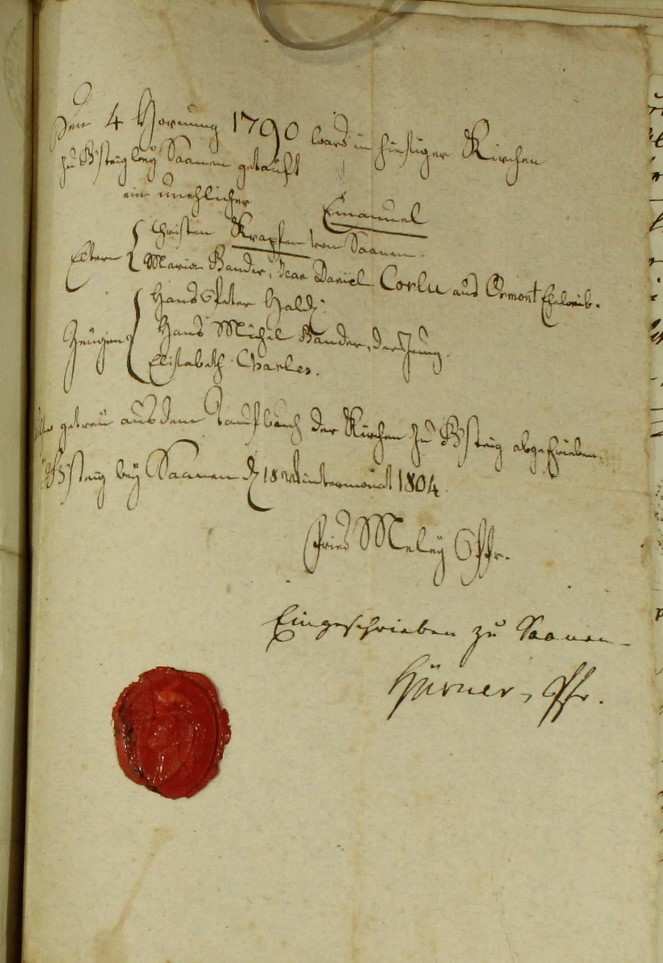 Den 4 Hornung 1790 ward in hiesiger Kirchen
zu Gsteig bey Saanen getauft
ein unehlicher
Emanuel
Eltern
Christen Krapfen von Saanen.
Maria Bander, Jean Daniel Corlu aus Ormont Eheweib.
Zeugen
Hans Peter Haldj
Hans Michel Bander, der Jung.
Elisabeth Charles.
getreü aus dem Taufbuch der Kirchen zu Gsteig abgeschrieben.
Gsteig bey Saanen d. 18 Wintermonat 1804
Fried Meley Pfr.
Eingeschrieben zu Saanen
Hürner, Pfr.